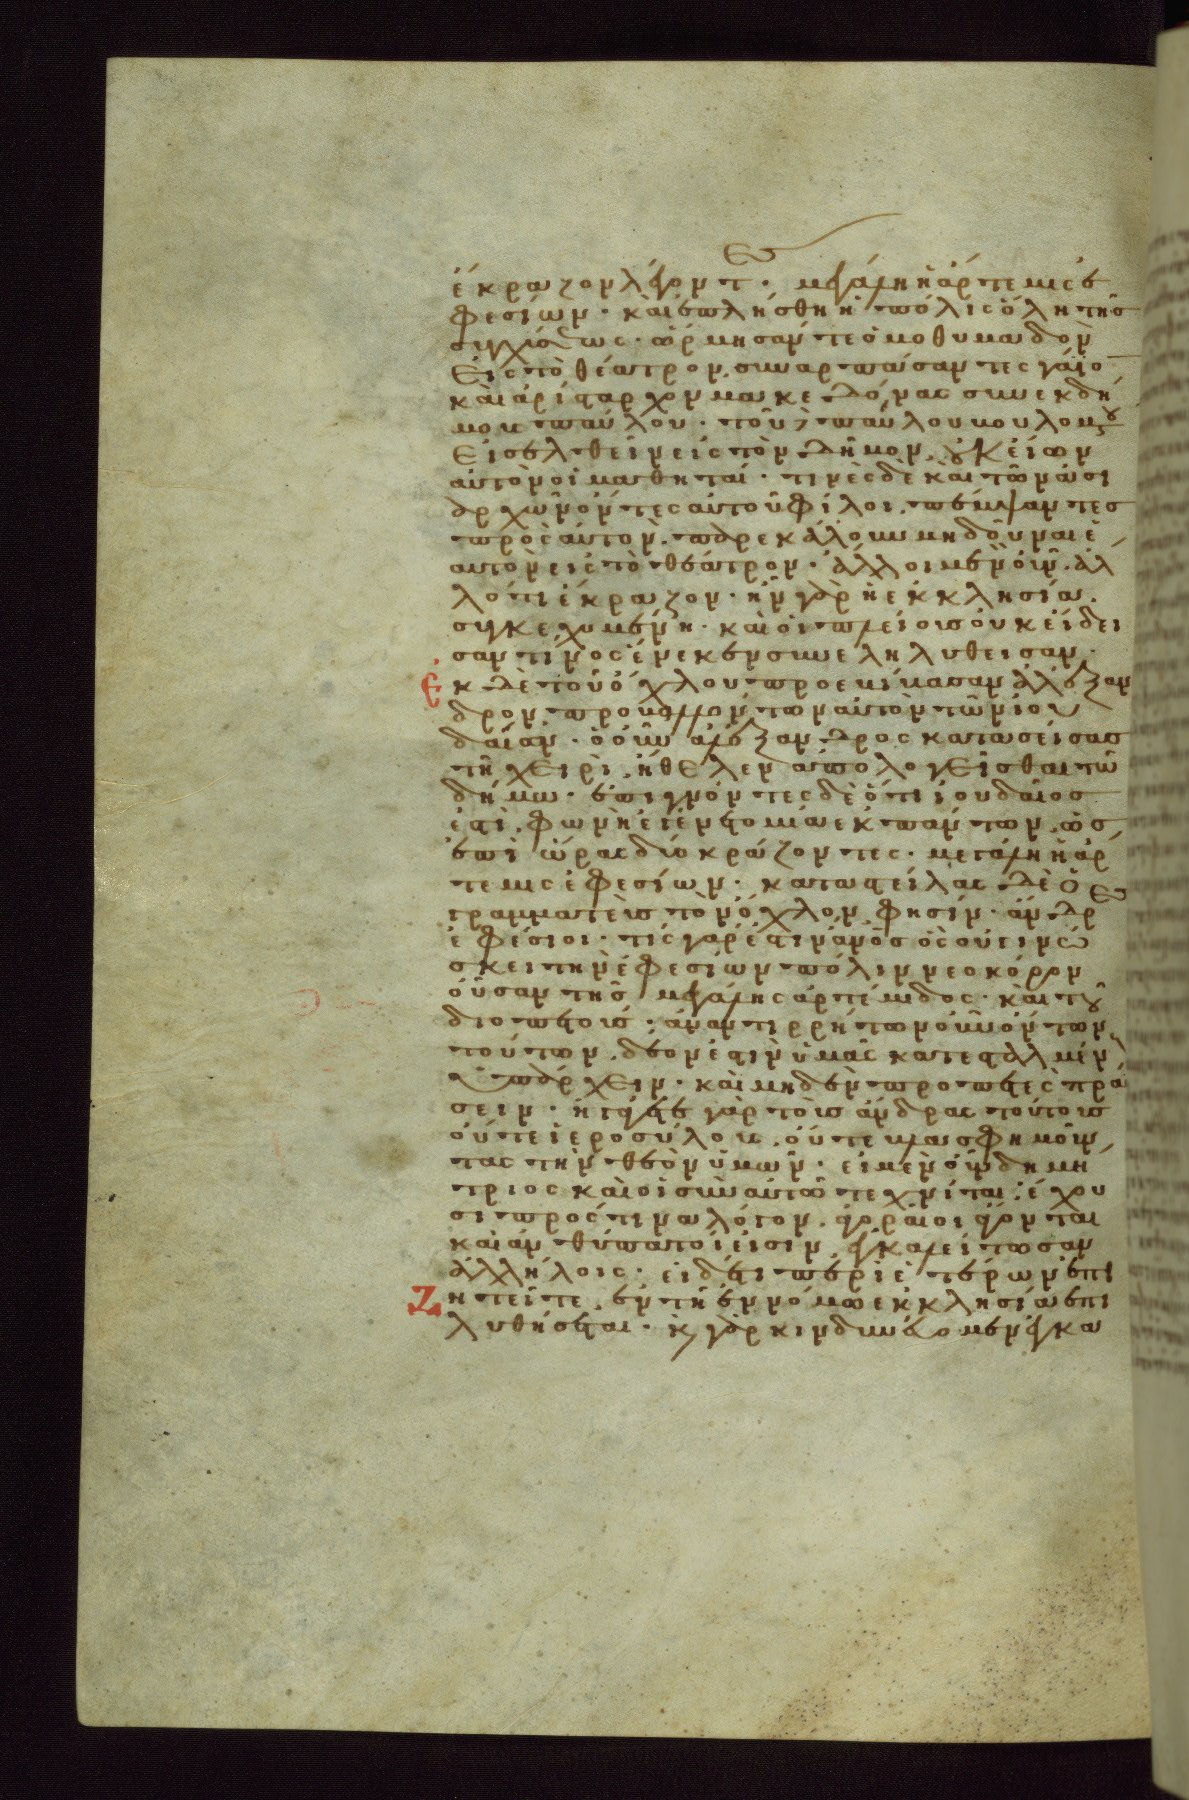 ἔκραζον λέγοντες· μεγάλη ἡ ἄρτεμις ἐ
φεσίων· καὶ ἐπλήσθη ἡ πόλις ὅλη τῆς
συγχύσεως· ὥρμησάν τε ὁμοθυμαδὸν
εἰς τὸ θέατρον, συναρπάσαντες γάϊο
καὶ ἀρίσταρχον μακεδόνας συνεκδή
μους παύλου· τοῦ δὲ παύλου βουλομένου
εἰσελθεῖν εἰς τὸν δῆμον, οὐκ εἴων
αὐτὸν οἱ μαθηταί· τινὲς δὲ καὶ τῶν ἀσι
αρχῶν ὄντες αὐτοῦ φίλοι, πέμψαντες
πρὸς αὐτὸν, παρεκάλουν μὴ δοῦναι ἑ
αυτὸν εἰς τὸ θέατρον· ἄλλοι μὲν οὖν ἄλ
λό τι ἔκραζον· ἦν γὰρ ἡ ἐκκλησία
συγκεχυμένη· καὶ οἱ πλείους οὐκ ᾔδει
σαν τίνος ἕνεκεν συνεληλύθεισαν·
ἐκ δὲ τοῦ ὄχλου προεβίβασαν ἀλέξαν
δρον, προβαλλόντων αὐτὸν τῶν ἰου
δαίων· ὁ οὖν ἀλέξανδρος κατασείσας
τὴ χειρὶ, ἤθελεν ἀπολογεῖσθαι τῶ
δήμω· ἐπιγνόντες δὲ ὅτι ἰουδαῖος
ἐστὶ, φωνὴ ἐγένετο μία ἐκ πάντων, ὡς
ἐπὶ ὥρας δύο κράζοντες· μεγάλη ἡ ἄρ
τεμις ἐφεσίων· καταστείλας δὲ ὁ
γραμματεὺς τὸν ὄχλον, φησίν· ἄνδρες
ἐφέσιοι· τίς γάρ ἐστιν ἄνος ὃς οὐ γινώ
σκει τὴν ἐφεσίων πόλιν νεοκόρον
οὖσαν τῆς μεγάλης ἀρτέμιδος· καὶ τοῦ
διοπετοῦς· ἀναντιρρήτων οὖν ὄντων
τούτων, δέον ἐστὶν ὑμᾶς κατεσταλμέν
ὑπάρχειν· καὶ μηδὲν προπετὲς πρά
σειν· ἠγάγετε γὰρ τοὺς ἄνδρας τούτους
οὔτε ἱεροσύλους, οὔτε βλασφημοῦν
τας τὴν θεὸν ὑμῶν· εἰ μὲν οὖν δημή
τριος καὶ οἱ σὺν αὐτῶ τεχνῖται, ἔχου
σι πρός τινα λόγον, ἀγοραῖοι ἄγονται
καὶ ἀνθύπατοί εἰσιν, ἐγκαλείτωσαν
ἀλλήλοις· εἰ δέ τι περὶ ἑτέρων ἐπι
ζητεῖτε, ἐν τῆ ἐννόμω ἐκκλησία ἐπι
λυθήσεται· καὶ γὰρ κινδυνεύομεν ἐγκα